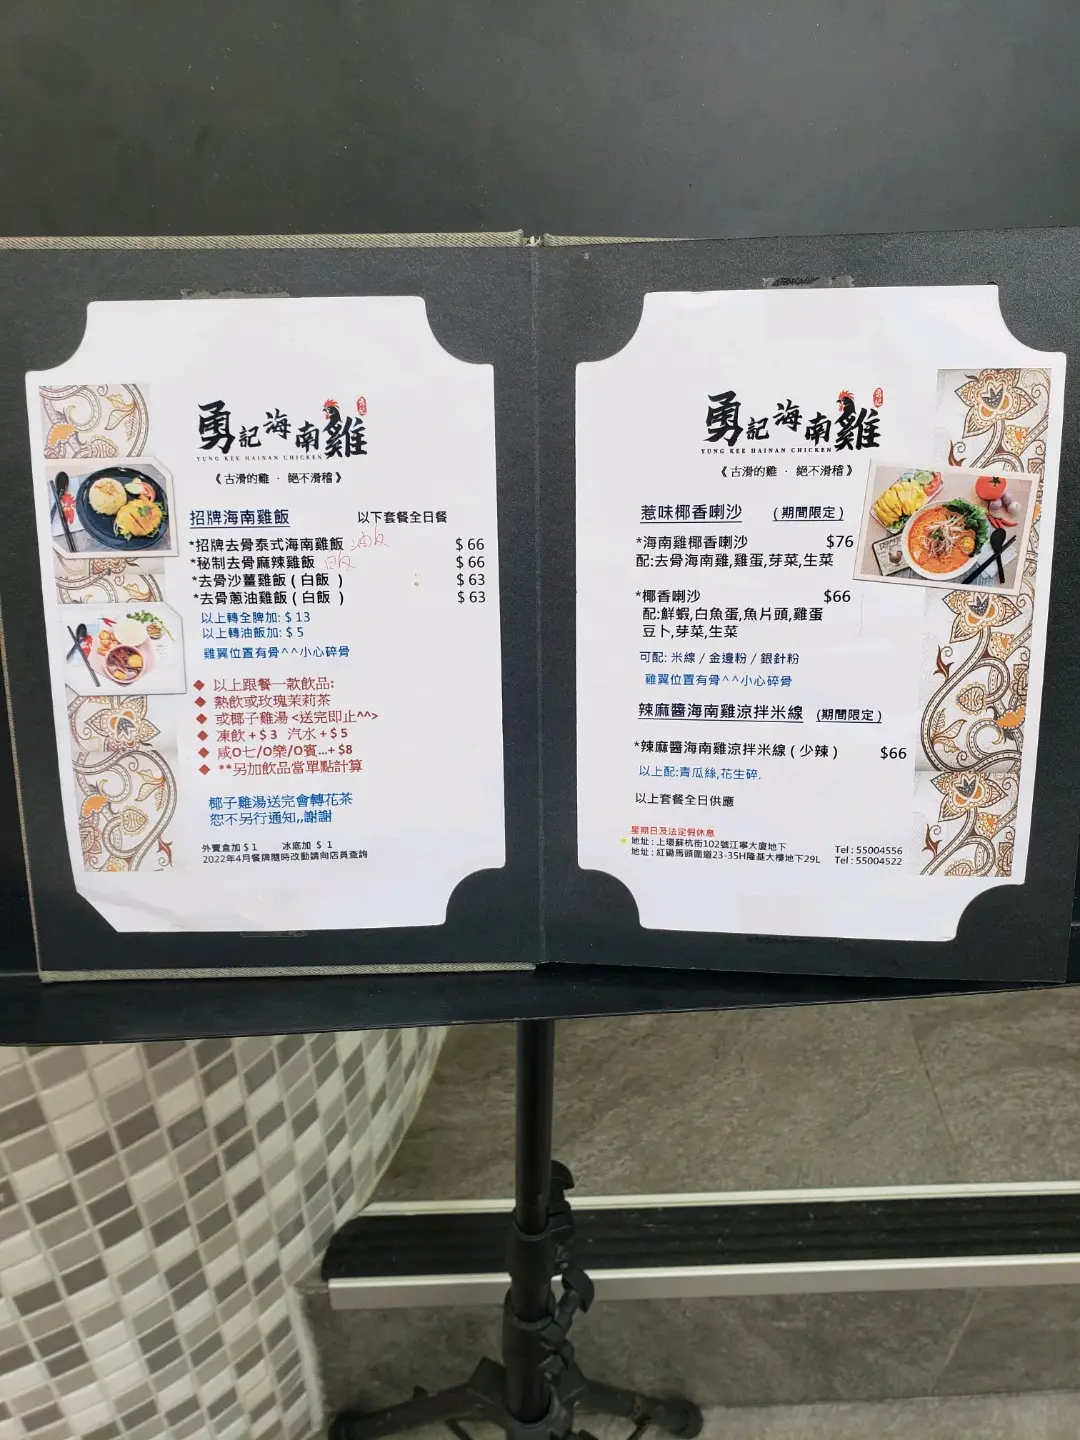 勇記海南雞
YUNG KEE HAINAN CHICKEN
《古滑的雞 · 絕不滑稽》
招牌海南雞飯 以下套餐全日餐
*招牌去骨泰式海南雞飯 油飯 $66
*秘制去骨麻辣雞飯 $66
*去骨沙薑雞飯 ( 白飯 ) $63
*去骨蔥油雞飯 ( 白飯 ) $63
以上轉全脾加: $13
以上轉油飯加: $5
雞翼位置有骨^^小心碎骨
◆ 以上跟餐一款飲品:
◆ 熱飲或玫瑰茉莉茶
◆ 或椰子雞湯 <送完即止^^>
◆ 凍飲+$3 汽水+$5
◆ 咸O七/O樂/O賓...+$8
◆ **另加飲品當單點計算
椰子雞湯送完會轉花茶
恕不另行通知,,謝謝
外賣盒加$1 冰底加 $ 1
2022年4月餐牌隨時改動請向店員查詢
勇記海南雞
YUNG KEE HAINAN CHICKEN
《古滑的雞 · 絕不滑稽》
惹味椰香喇沙 (期間限定)
*海南雞椰香喇沙 $76
配:去骨海南雞,雞蛋,芽菜,生菜
*椰香喇沙 $66
配:鮮蝦,白魚蛋,魚片頭,雞蛋
豆卜,芽菜,生菜
可配: 米線 / 金邊粉 / 銀針粉
雞翼位置有骨^^小心碎骨
辣麻醬海南雞涼拌米線 (期間限定)
*辣麻醬海南雞涼拌米線 ( 少辣 ) $66
以上配:青瓜絲,花生碎.
以上套餐全日供應
星期日及法定假休息
地址 : 上環蘇杭街102號江寧大廈地下 Tel : 55004556
地址 : 紅磡馬頭圍道23-35H隆基大樓地下29L Tel : 55004522